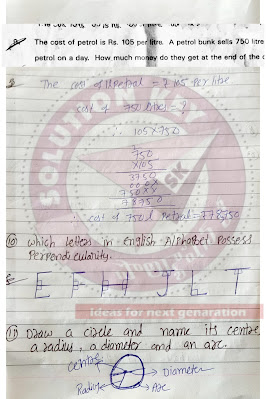 The cost of petrol is Rs. 105 per litre. A petrol bunk sells 750 litre
petrol on a day. How much money do they get at the end of the
The cost of petrol = ₹ 105 per litre
cost of 750 litre = ?
∴ 105 x 750
750
x105
3750
000x
750xx
78750
∴ cost of 750 l Petrol = ₹ 78750
(10) which letters in English Alphabet Possess
Perpendicularity.
E F H J L T
Ideas for next genaration
(11) Draw a circle and name its centre
a radius, a diameter and an arc.
centre
Diameter
Radius
Arc